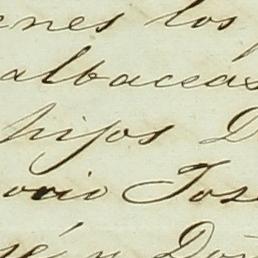 enes los
albaceas
hijos D
ocio Jos
sé y Doñ